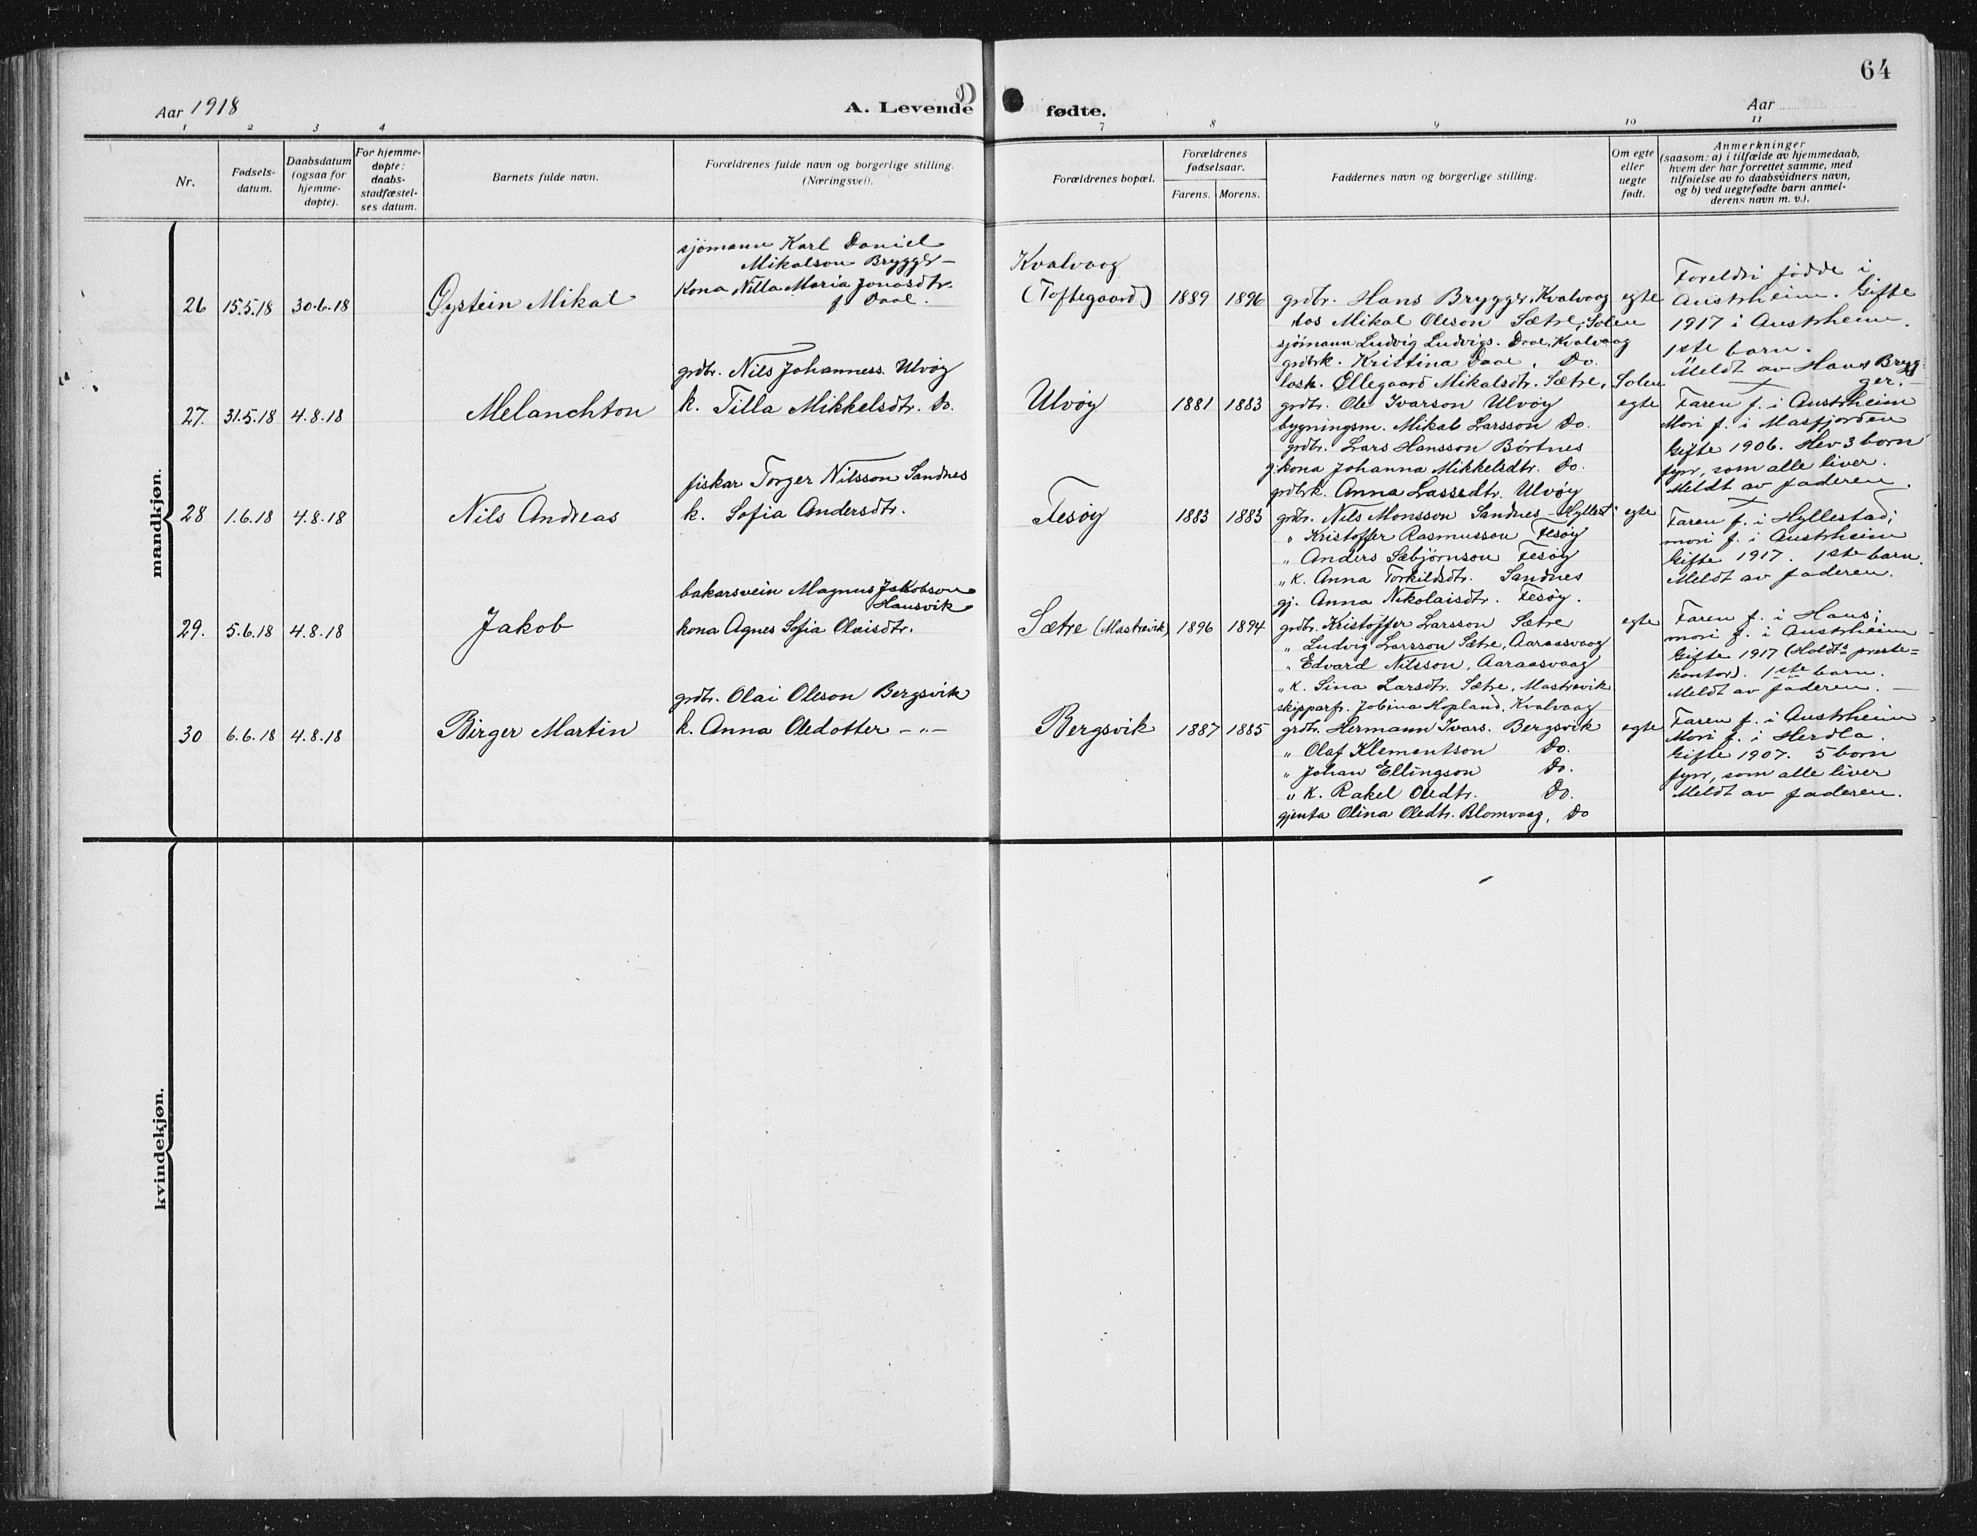 64
Aar 1918
A. Levende fødte.
Aar
1 2 3 4 7 8 9 10 11
Nr.
Fødsels-
datum.
Daabsdatum
(ogsaa for
hjemme-
døpte).
For hjemme-
døpte:
daabs-
stadfæstel-
ses datum.
Barnets fulde navn.
Forældrenes fulde navn og borgerlige stilling.
(Næringsvei).
Forældrenes bopæl.
Forældrenes
fødselsaar.
Farens. Morens.
Faddernes navn og borgerlige stilling.
Om egte
eller
uegte
født.
Anmerkninger
(saasom: a) i tilfælde av hjemmedaab,
hvem der har forrettet samme, med
tilføielse av to daabsvidners navn,
og b) ved uegtefødte barn anmel-
derens navn m. v.).
mandkjøn.
26 15.5.18 30.6.18 Øystein Mikal
sjømann Karl Daniel
Mikalson Brygger
Kona Nilla Maria Jonasdtr.
f Daae.
Kvalvaag
(Toftegaard) 1889 1896
grdbr. Hans Brygger, Kvalvaag
los Mikal Oleson Sætre, Solen
sjømann Ludvig Ludvigs. Daae, Kvalvaag
grdbrk. Kristina Daae, Do.
losk. Ollegaard Mikalsdtr. Sætre, Solen
egte
Foreldri fødde i
Austrheim. Gifte
1917 i Austrheim.
1ste barn.
Meldt av Hans Bryg-
ger.
27. 31.5.18 4.8.18 Melanchton
grdbr. Nils Johanness. Ulvøy
k. Tilla Mikkelsdtr. Do.
Ulvøy 1881 1883
grdbr. Ole Ivarson Ulvøy
bygningsm. Mikal Larsson Do.
grdbr. Lars Hansson Børtnes
gkona Johanna Mikkelsdtr. Do.
grdbrk. Anna Lassedtr. Ulvøy
egte
Faren f. i Austrheim
Mori f. i Masfjorden
Gifte 1906. Hev 3 born
fyrr, som alle liver.
Meldt av faderen.
28 1.6.18 4.8.18 Nils Andreas
fiskar Torger Nilsson Sandnes
k. Sofia Andersdtr.
Fesøy 1883 1883
grdbr. Nils Monsson Sandnes Hyllest.
" Kristoffer Rasmusson Fesøy
" Anders Sæbjørnson Fesøy
" k. Anna Torkildsdtr. Sandnes
gj. Anna Nikolaisdtr. Fesøy.
egte
Faren f. i Hyllestad;
mori f. i Austrheim
Gifte 1917. 1ste barn.
Meldt av faderen.
29. 5.6.18 4.8.18 Jakob
bakarsvein Magnus Jakobson
Hausvik
kona Agnes Sofia Olaisdtr.
Sætre (Mastrevik) 1896 1894
grdbr. Kristoffer Larsson Sætre
" Ludvig Larsson Sætre, Aaraasvaag
" Edvard Nilsson, Aaraasvaag
" k. Sina Larsdtr. Sætre, Mastrevik
skipparfr. Jobina Hopland, Kvalvaag
egte
Faren f. i Haus;
mori f. i Austrheim
Gifte 1917 (Holdts preste-
kontor). 1ste barn.
Meldt av faderen.
30 6.6.18 4.8.18 Birger Martin
grdbr. Olai Oleson Bergsvik
k. Anna Oledotter - " -
Bergsvik 1887 1885
grdbr. Hermann Ivars. Bergsvik
" Olaf Klementson Do.
" Johan Ellingson Do.
" k. Rakel Oledtr. Do.
gjenta Olina Oledtr. Blomvaag, Do
egte
Faren f. i Austrheim
Mori f. i Herdla.
Gifte 1907. 5 born
fyrr, som alle liver
Meldt av faderen.
kvindekjøn.